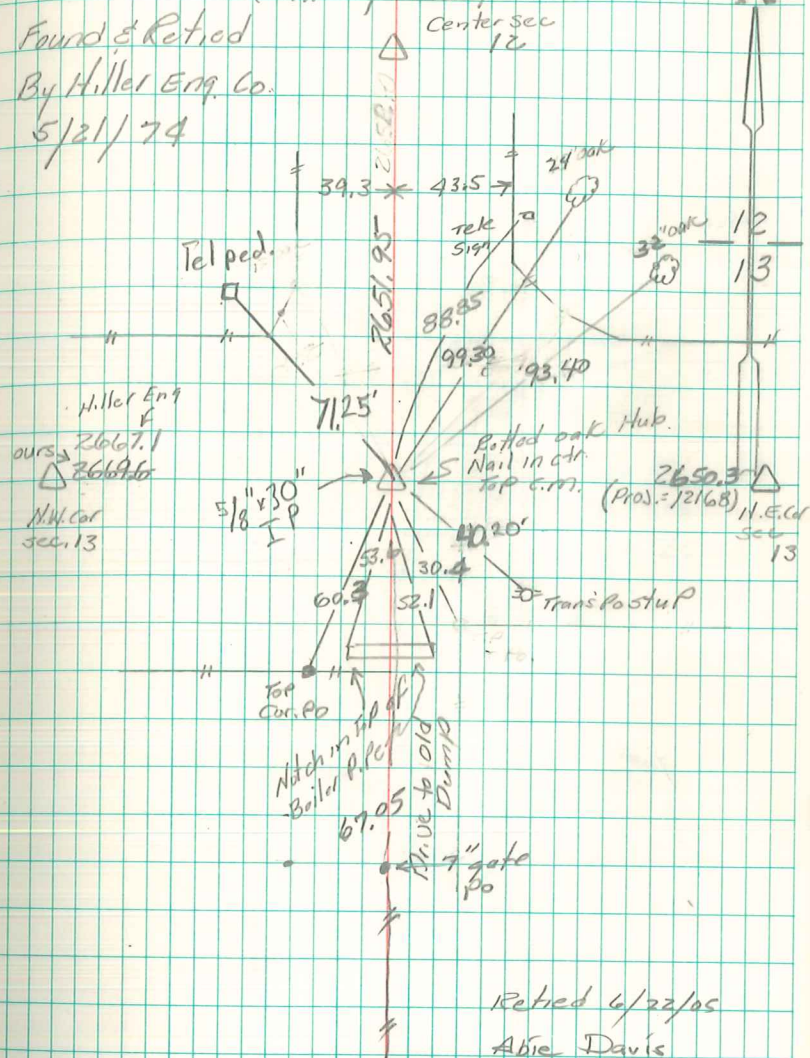 Found & Retied
By Hiller Eng. Co.
5/21/74
Center sec
12
2651.95
39.3
43.5
24" oak
Tele
Sign
32" oak
12
13
Tel ped.
88.85
99.30
93.40
71.25'
Hiller Eng
ours
2667.1
2669.6
N.W. Cor
sec. 13
5/8" x 30"
I P
Rotted oak Hub.
Nail in ctr.
Top c.m.
2650.3
(Proj. = 12168)
N.E. Cor
sec
13
40.20'
53.0
30.4
60.3
52.1
Trans Post up
Top
Cor. Po
Notch in top of
Boiler Pipe
Drive to old
Dump
67.05
7" gate
po
Retied 6/22/05
Abie Davis